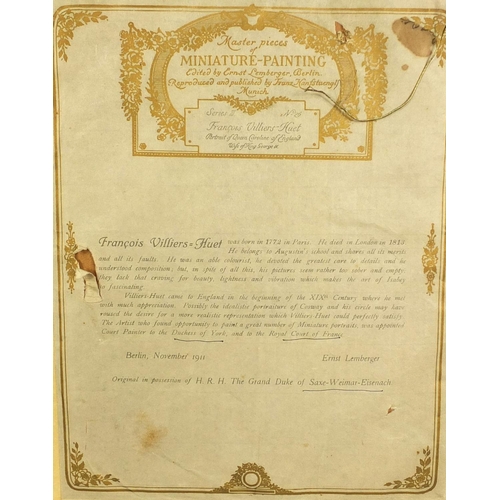 Master pieces
of
MINIATURE-PAINTING
Edited by Ernst Lemberger, Berlin.
Reproduced and published by Franz Hanfstaengl
Munich
Series II Nº
François Villiers-Huet
Portrait of Queen Caroline of England
Wife of King George
François Villiers-Huet was born in 1772 in Paris. He died in London in 1813.
He belongs to Augustin's school and shares all its merits
and all its faults. He was an able colourist, he devoted the greatest care to details and he
understood composition, but, in spite of all this, his pictures seem rather too sober and empty;
they lack that craving for beauty, lightness and vibration which makes the art of Isabey
so fascinating.
Villiers-Huet came to England in the beginning of the XIXth Century where he met
with much appreciation. Possibly the idealistic portraiture of Cosway and his circle may have
roused the desire for a more realistic representation which Villiers-Huet could perfectly satisfy.
The Artist who found opportunity to paint a great number of Miniature portraits, was appointed
Court Painter to the Duchess of York, and to the Royal Court of France.
Berlin, November 1911 Ernst Lemberger
Original in possession of H. R. H. The Grand Duke of Saxe-Weimar-Eisenach.